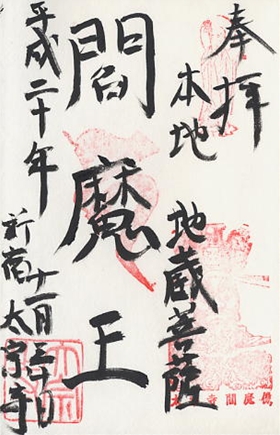 奉拝
本地 地蔵菩薩
閻魔王
平成二十年
十一月三十日
新宿 太宗寺